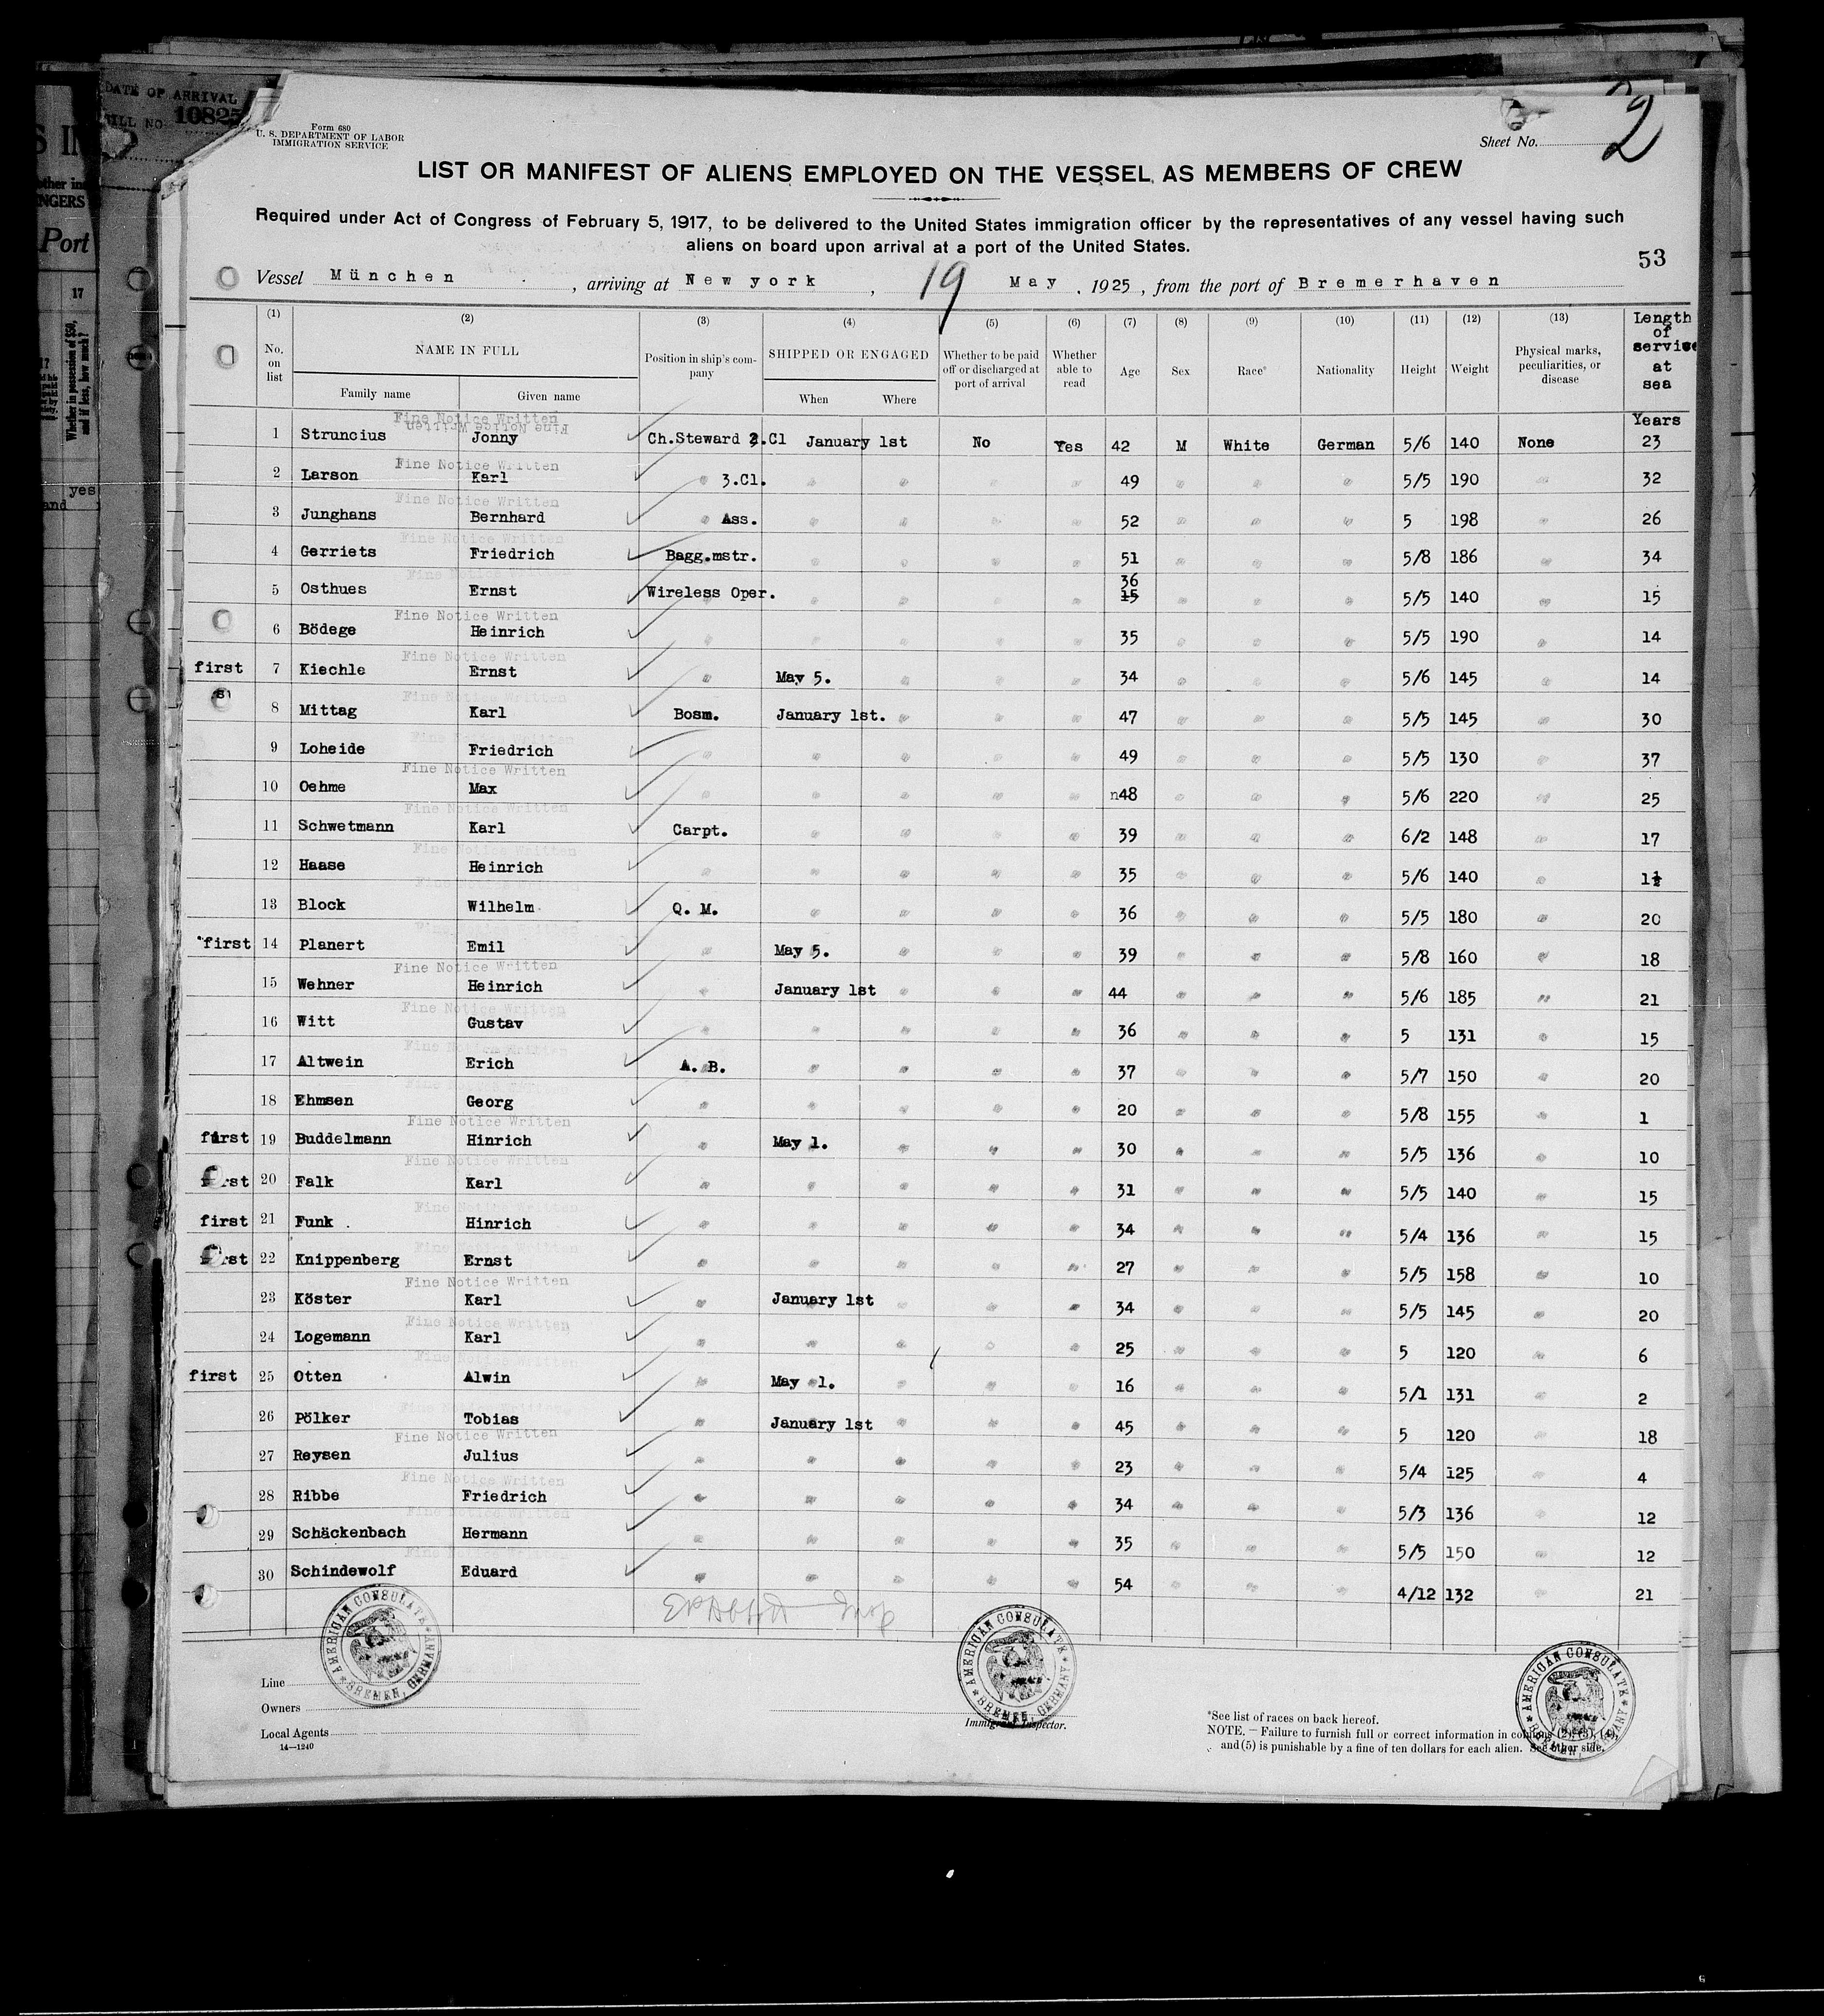 DATE OF ARRIVAL
10825
Form 680
U. S. DEPARTMENT OF LABOR
IMMIGRATION SERVICE
Sheet No. 2
LIST OR MANIFEST OF ALIENS EMPLOYED ON THE VESSEL AS MEMBERS OF CREW
Required under Act of Congress of February 5, 1917, to be delivered to the United States immigration officer by the representatives of any vessel having such
aliens on board upon arrival at a port of the United States.
53
Vessel München , arriving at New york , 19 May , 1925 , from the port of Bremerhaven
(1) (2) (3) (4) (5) (6) (7) (8) (9) (10) (11) (12) (13)
No. on list NAME IN FULL Family name Given name Position in ship's company SHIPPED OR ENGAGED When Where Whether to be paid off or discharged at port of arrival Whether able to read Age Sex Race* Nationality Height Weight Physical marks, peculiarities, or disease Length of service at sea
Years
Fine Notice Written
1 Struncius Jonny Ch.Steward 2.Cl January 1st No Yes 42 M White German 5/6 140 None 23
Fine Notice Written
2 Larson Karl " 3.Cl. " " " " 49 " " " 5/5 190 " 32
Fine Notice Written
3 Junghans Bernhard " Ass. " " " " 52 " " " 5 198 " 26
Fine Notice Written
4 Gerriets Friedrich Bagg.mstr. " " " " 51 " " " 5/8 186 " 34
Fine Notice Written
5 Osthues Ernst Wireless Oper. " " " " 36 15 " " " 5/5 140 " 15
Fine Notice Written
6 Bödege Heinrich " " " " " 35 " " " 5/5 190 " 14
Fine Notice Written
first 7 Kiechle Ernst " May 5. " " " 34 " " " 5/6 145 " 14
Fine Notice Written
8 Mittag Karl Bosm. January 1st. " " " 47 " " " 5/5 145 " 30
Fine Notice Written
9 Loheide Friedrich " " " " " 49 " " " 5/5 130 " 37
Fine Notice Written
10 Oehme Max " " " " " n48 " " " 5/6 220 " 25
Fine Notice Written
11 Schwetmann Karl Carpt. " " " " 39 " " " 6/2 148 " 17
Fine Notice Written
12 Haase Heinrich " " " " " 35 " " " 5/6 140 " 1½
Fine Notice Written
13 Block Wilhelm Q. M. " " " " 36 " " " 5/5 180 " 20
first 14 Planert Emil " May 5. " " " 39 " " " 5/8 160 " 18
Fine Notice Written
15 Wehner Heinrich " January 1st " " " 44 " " " 5/6 185 " 21
Fine Notice Written
16 Witt Gustav " " " " " 36 " " " 5 131 " 15
Fine Notice Written
17 Altwein Erich A. B. " " " " 37 " " " 5/7 150 " 20
18 Ehmsen Georg " " " " " 20 " " " 5/8 155 " 1
Fine Notice Written
first 19 Buddelmann Hinrich " May 1. " " " 30 " " " 5/5 136 " 10
Fine Notice Written
first 20 Falk Karl " " " " " 31 " " " 5/5 140 " 15
Fine Notice Written
first 21 Funk Hinrich " " " " " 34 " " " 5/4 136 " 15
Fine Notice Written
first 22 Knippenberg Ernst " " " " " 27 " " " 5/5 158 " 10
Fine Notice Written
23 Köster Karl " January 1st " " " 34 " " " 5/5 145 " 20
Fine Notice Written
24 Logemann Karl " " " " " 25 " " " 5 120 " 6
Fine Notice Written
first 25 Otten Alwin " May 1. " " " 16 " " " 5/1 131 " 2
Fine Notice Written
26 Pölker Tobias " January 1st " " " 45 " " " 5 120 " 18
Fine Notice Written
27 Reysen Julius " " " " " 23 " " " 5/4 125 " 4
Fine Notice Written
28 Ribbe Friedrich " " " " " 34 " " " 5/3 136 " 12
Fine Notice Written
29 Schäckenbach Hermann " " " " " 35 " " " 5/5 150 " 12
Fine Notice Written
30 Schindewolf Eduard " " " " " 54 " " " 4/12 132 " 21
AMERICAN CONSULATE BREMEN, GERMANY
AMERICAN CONSULATE BREMEN, GERMANY
AMERICAN CONSULATE BREMEN, GERMANY
Line
Owners
Local Agents
14—1240
Immigrant Inspector.
*See list of races on back hereof.
NOTE. — Failure to furnish full or correct information in columns (2), (3), (4),
and (5) is punishable by a fine of ten dollars for each alien. See other side.